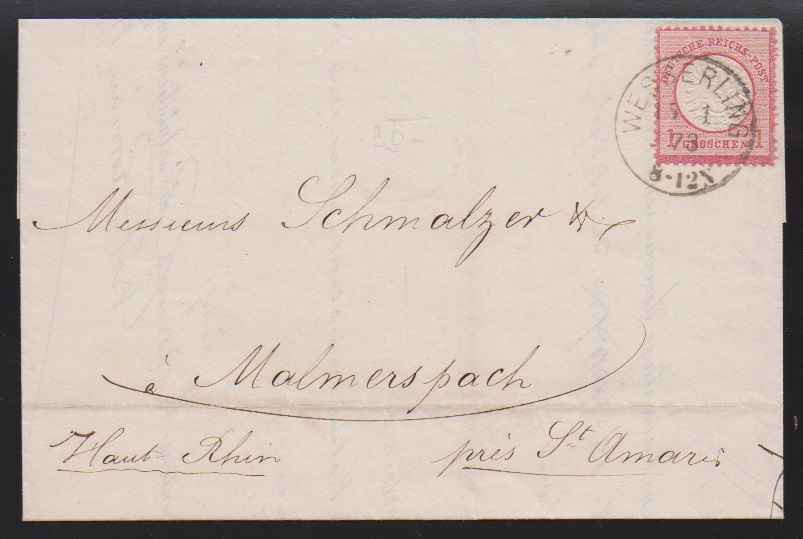 DEUTSCHE REICHS-POST
1 GROSCHEN 1
WESSERLING
1
73
8-12N
30-
Messieurs Schmalzer &
à Malmerspach
Haut-Rhin
près St Amarin